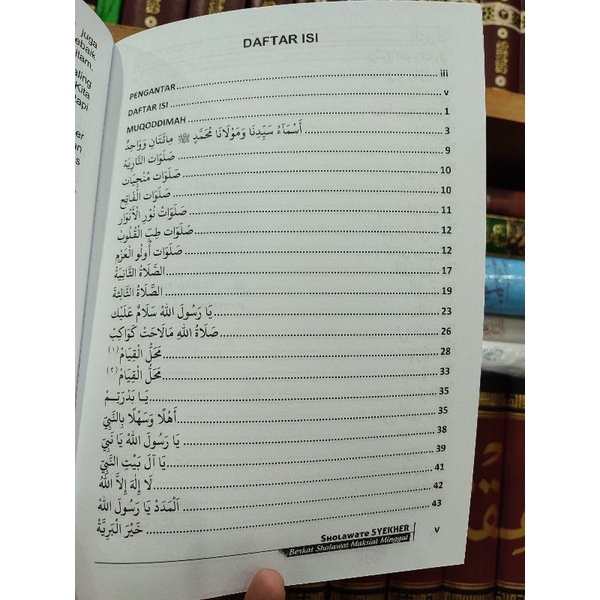 juga
ebaik
aling
Kita
DAFTAR ISI
PENGANTAR ........ iii
DAFTAR ISI ........ v
MUQODDIMAH ........ 1
أَسْمَآءُ سَيِّدِنَا وَمَوْلَانَا مُحَمَّدٍ ﷺ مِائَتَانِ وَوَاحِدٌ ........ 3
صَلَوَات النَّارِيَة ........ 9
صَلَوَات مُنْجِيَات ........ 10
صَلَوَات الْفَاتِح ........ 10
صَلَوَات نُوْرِ الْأَنْوَار ........ 11
صَلَوَات طِبِّ الْقُلُوبْ ........ 12
صَلَوَات أُولُو الْعَزْمِ ........ 12
الصَّلَاةُ الثَّانِيَةُ ........ 17
الصَّلَاةُ الثَّالِثَةُ ........ 19
يَا رَسُولَ اللهْ سَلَامٌ عَلَيْك ........ 23
صَلَاةُ اللهِ مَالَاحَتْ كَوَاكِبْ ........ 26
مَحَلُّ الْقِيَامُ (١) ........ 28
مَحَلُّ الْقِيَامُ (٢) ........ 33
يَـا بَـدْرَتِـمْ ........ 35
أَهْلًا وَسَهْلًا بِالنَّبِيّ ........ 35
يَا رَسُولَ اللهْ يَا نَبِيّ ........ 38
يَا آلَ بَيْتِ النَّبِيّ ........ 39
لَا إِلٰهَ إِلاَّ اللهُ ........ 41
اَلْمَدَدْ يَا رَسُولَ اللهُ ........ 42
خَيْرَ الْبَرِيَّةْ ........ 43
SHOLAWATE SYEKHER
Berkat Sholawat Maksiat Minggat
v